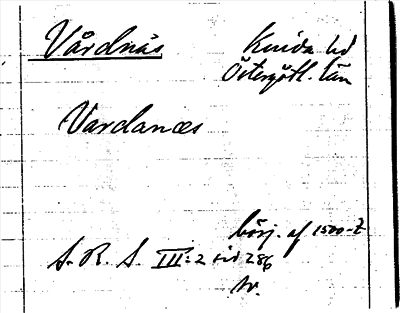 Vårdnäs Kinda hd
Östergötl. län
Vardanæs
börj. af 1500-t
S. R. S. III:2 sid 286
tr.